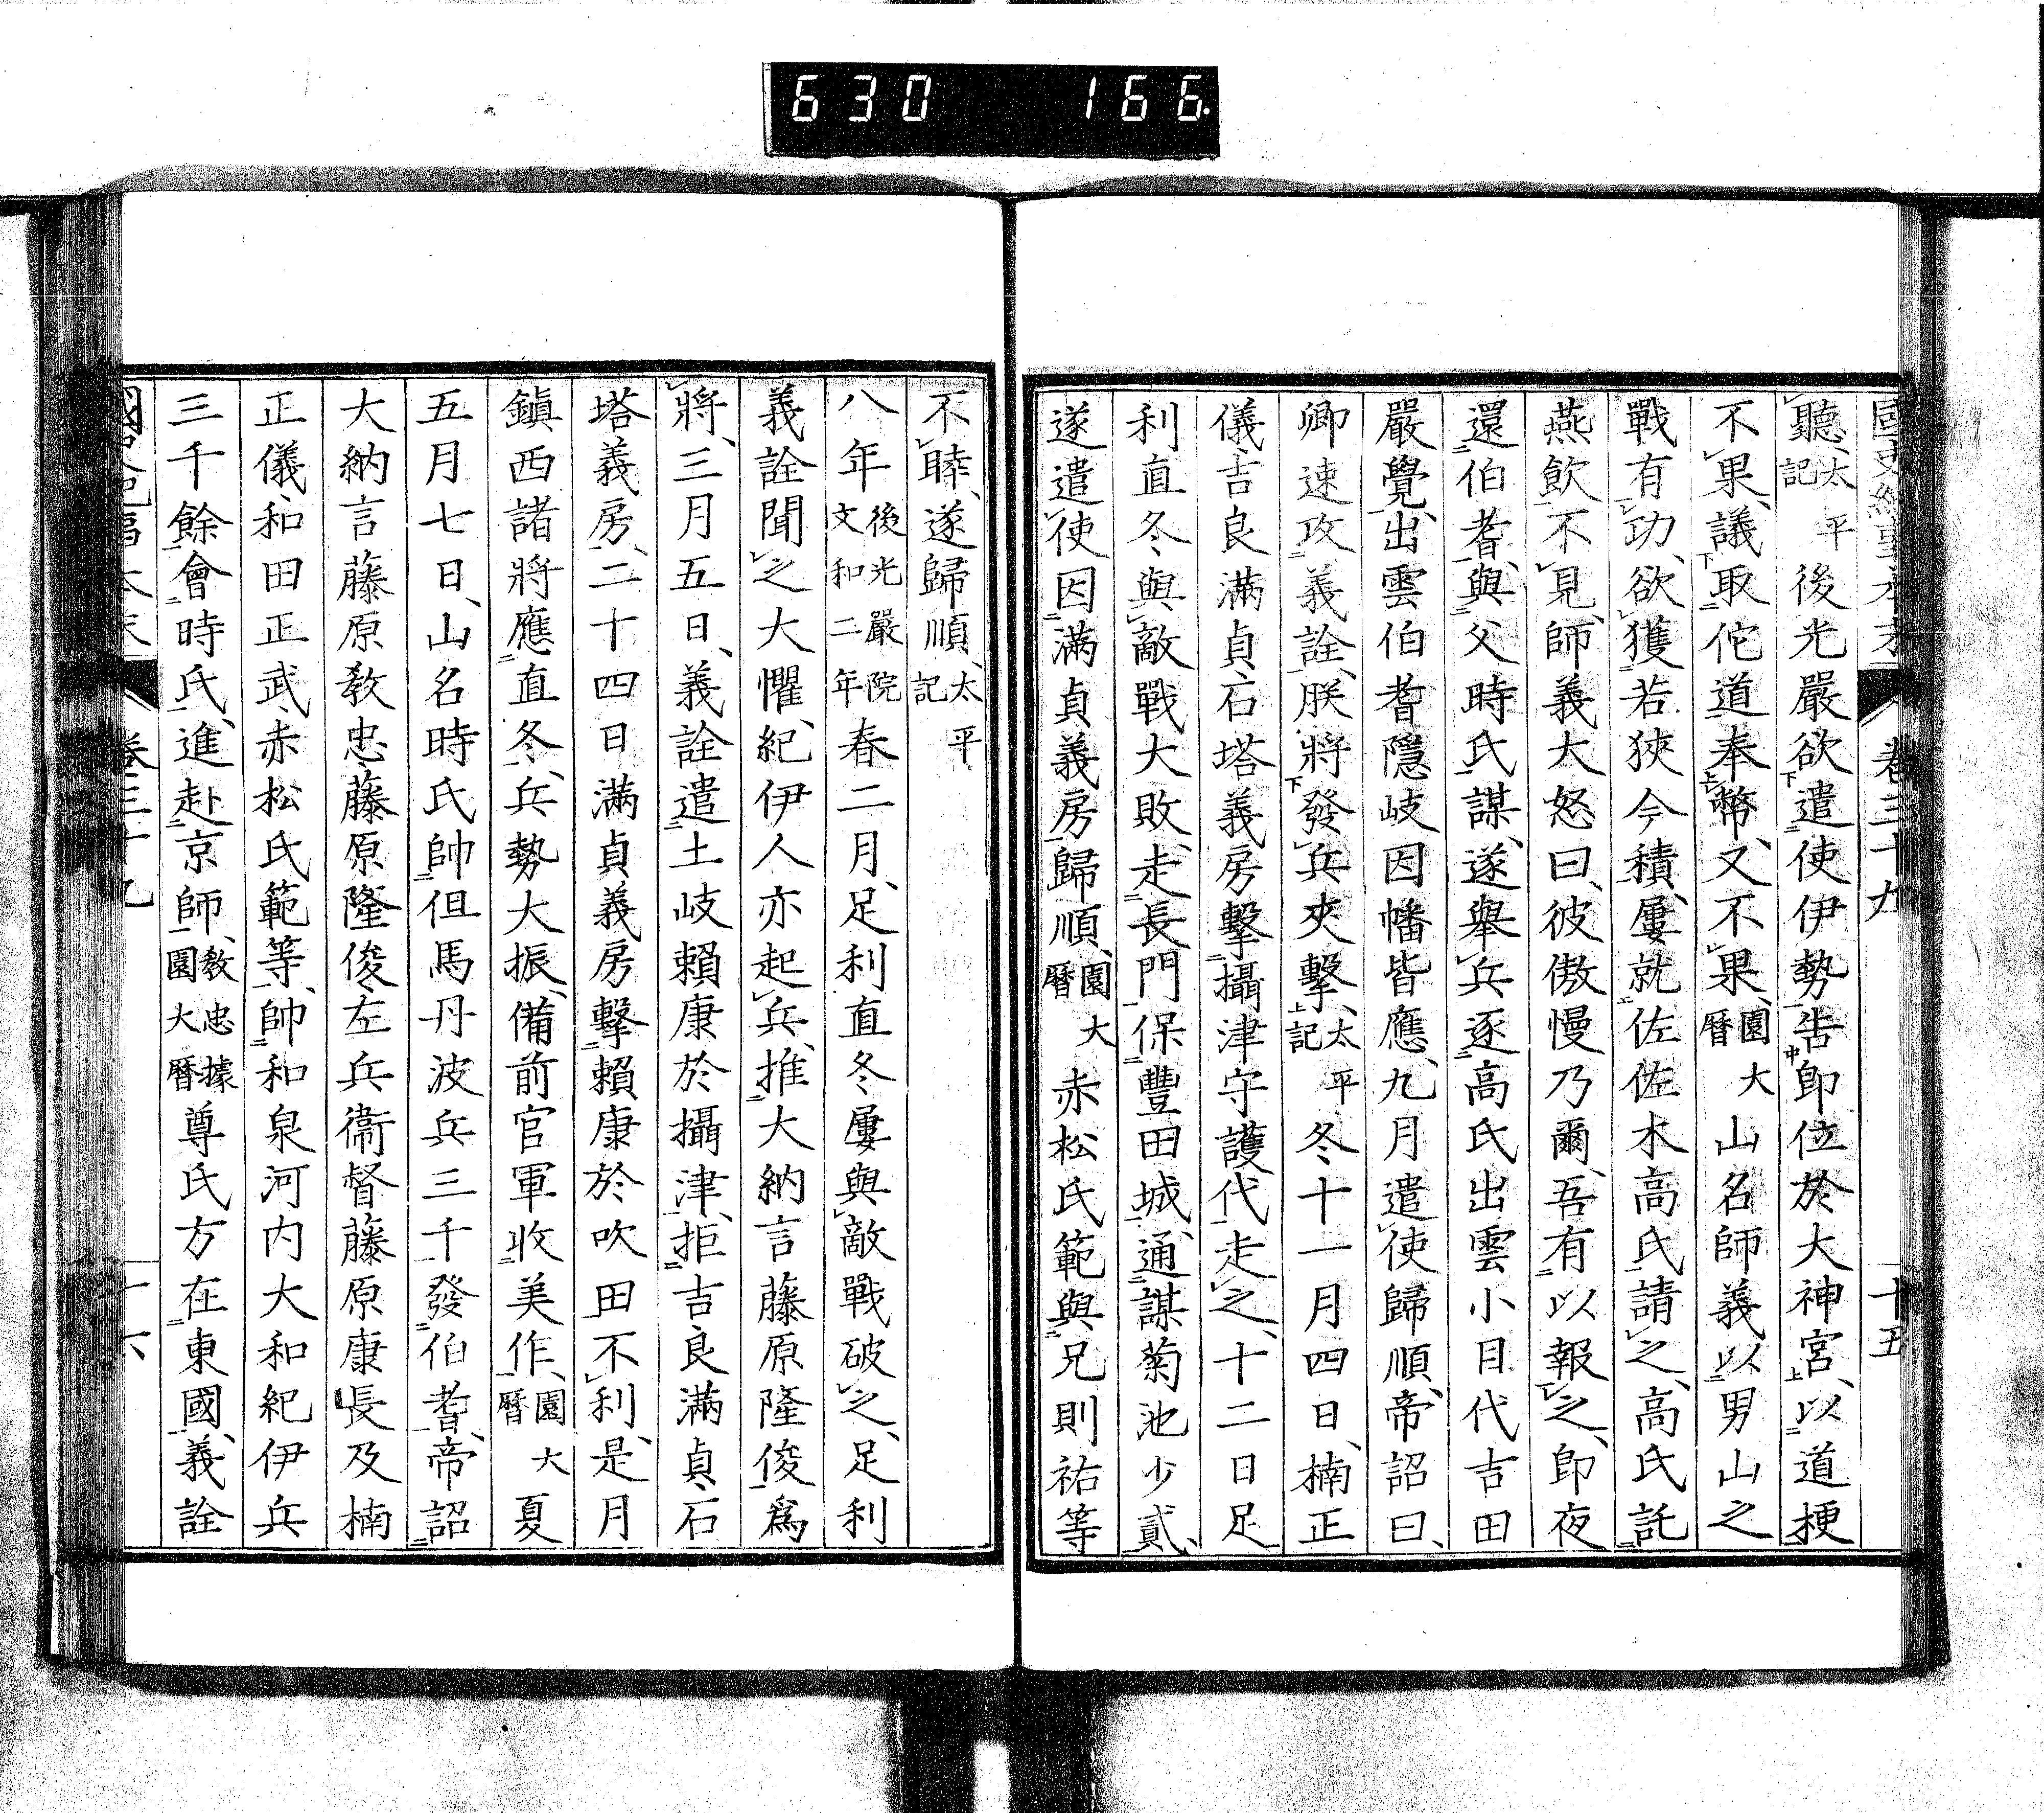 630 166.
國史紀事本末 卷三十九 十五
聽、太平記後光嚴欲遣使伊勢告卽位於大神宮、以道梗
不果、議取佗道奉幣、又不果、園大曆山名師義以男山之
戰有功、欲獲若狹今積、屢就佐佐木高氏請之、高氏託
燕飲不見、師義大怒曰、彼傲慢乃爾、吾有以報之、卽夜
還伯耆、與父時氏謀、遂舉兵逐高氏出雲小目代吉田
嚴覺、出雲伯耆隱岐因幡皆應、九月遣使歸順、帝詔曰、
卿速攻義詮、朕將發兵夾擊、太平記冬十一月四日、楠正
儀吉良滿貞、石塔義房擊攝津守護代走之、十二日足
利直冬與敵戰大敗、走長門保豐田城、通謀菊池少貳、
遂遣使因滿貞義房歸順、園大曆赤松氏範與兄則祐等
不睦、遂歸順、太平記
八年後光嚴院文和二年春二月、足利直冬屢與敵戰破之、足利
義詮聞之大懼、紀伊人亦起兵、推大納言藤原隆俊爲
將、三月五日、義詮遣土岐賴康於攝津、拒吉良滿貞、石
塔義房、二十四日滿貞義房擊賴康於吹田不利、是月
鎭西諸將應直冬、兵勢大振、備前官軍收美作、園大曆夏
五月七日、山名時氏帥但馬丹波兵三千發伯耆、帝詔
大納言藤原敎忠、藤原隆俊、左兵衞督藤原康長及楠
正儀、和田正武、赤松氏範等、帥和泉河內大和紀伊兵
三千餘會時氏、進赴京師、敎忠據園大曆尊氏方在東國、義詮
國史紀事本末 卷三十九 十六